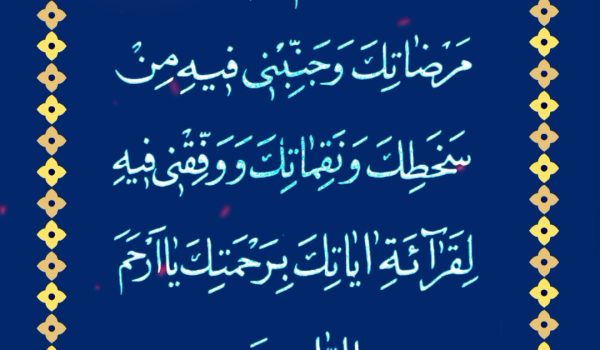 مَرْضاتِكَ وَجَنِّبْنی فیهِ مِنْ
سَخَطِكَ وَنَقِماتِكَ وَوَفِّقْنی فیهِ
لِقَرآئَةِ ایاتِكَ بِرَحْمَتِكَ یا اَرْحَمَ